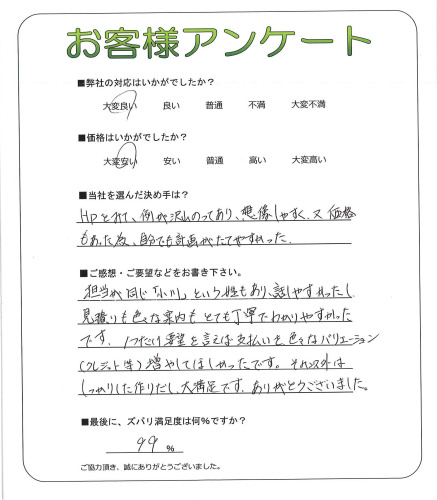 お客様アンケート
■弊社の対応はいかがでしたか?
大変良い 良い 普通 不満 大変不満
■価格はいかがでしたか?
大変安い 安い 普通 高い 大変高い
■当社を選んだ決め手は?
HPを見て、例が沢山のってあり、想像しやすく、又価格
もあった為、自分でも計画がたてやすかった。
■ご感想・ご要望などをお書き下さい。
担当が同じ「小川」という姓もあり、話しやすかったし
見積りも色々な案内もとても丁寧でわかりやすかった
です。1つだけ要望を言えば支払いも色々なバリエーション
(クレジット等)増やしてほしかったです。それ以外は
しっかりした作りだし、大満足です。ありがとうございました。
■最後に、ズバリ満足度は何%ですか?
99 %
ご協力頂き、誠にありがとうございました。